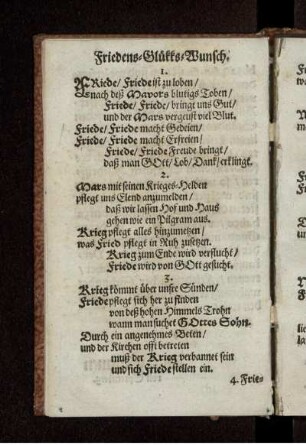 Friedens-Glükks-Wunsch.
1.
FRiede/ Friede ist zu loben/
nach deß Mavors blutigs Toben/
Friede/ Friede/ bringt uns Gut/
und der Mars vergeust viel Blut.
Friede/ Friede macht Gedeien/
Friede/ Friede macht Erfreien/
Friede/ Friede Freude bringt/
daß man GOtt/ Lob/ Dank/ erklingt.
2.
Mars mit seinen Krieges-Helden
pflegt uns Elend anzumelden/
daß wir lassen Hof und Haus
gehen wie ein Pilgram aus.
Krieg pflegt alles hinzumetzen/
was Fried pflegt in Ruh zusetzen.
Krieg zum Ende wird verflucht/
Friede wird von GOtt gesucht.
3.
Krieg kömmt über unsre Sünden/
Friede pflegt sich her zu finden
von deß hohen Himmels Trohn
wann man suchet GOttes Sohn.
Durch ein angenehmes Beten/
und der Kirchen offt betreten
muß der Krieg verbannet sein
und sich Friede stellen ein.
4. Frie-